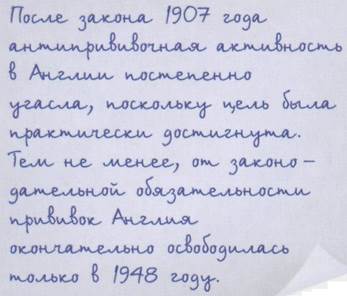 После закона 1907 года
антипрививочная активность
в Англии постепенно
угасла, поскольку цель была
практически достигнута.
Тем не менее, от законо-
дательной обязательности
прививок Англия
окончательно освободилась
только в 1948 году.